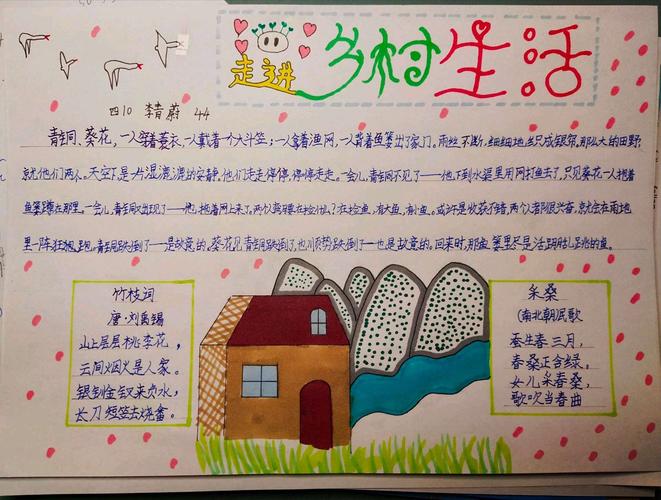 走进乡村生活
四10 李青蔚 44
青铜、葵花,一人穿着蓑衣,一人戴着一个大斗笠;一人拿着渔网,一人背着鱼篓出了家门。雨丝不断,细细地织成银帘,那么大的田野,
就他们两个人。天空下是一片湿漉漉的安静,他们走走停停,停停走走。一会儿,青铜不见了——他下到水渠里用网打鱼去了,只见葵花一人抱着
鱼篓蹲在那里。一会儿,青铜又出现了——他拖着网上来了,两个人弯腰在捡什么?在捡鱼,有大鱼,有小鱼。或许是收获不错,两个人都很兴奋,就会在雨地
里一阵狂跑。跑,青铜跌倒了——是故意的,葵花见青铜跌倒了,也顺势跌倒了——也是故意的。回来时,那鱼篓里尽是活蹦乱跳的鱼。
竹枝词
唐·刘禹锡
山上层层桃李花,
云间烟火是人家。
银钏金钗来负水,
长刀短笠去烧畬。
采桑
(南北朝)民歌
蚕生春三月,
春桑正含绿,
女儿采春桑,
歌吹当春曲